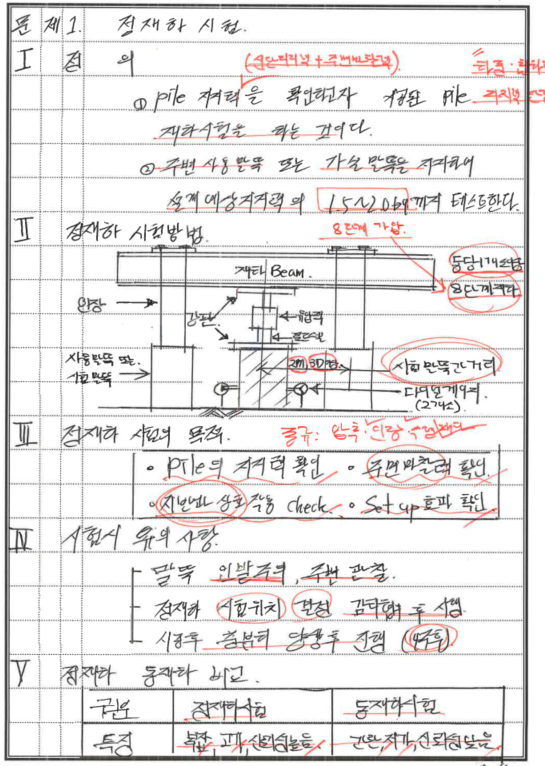 문제1. 정재하 시험.
I 정의
(선단지지력 + 주변마찰력)
① pile 지지력을 확인하고자 시공된 pile
재하시험을 하는 것이다.
② 주변 사용말뚝 또는 가설 말뚝을 지지하여
설계 예상지지력의 1.5~2.0배까지 테스트한다.
II 정재하 시험방법.
8단계 가압.
재하 Beam.
동당 1개소
8단계재하
인장
강판
유압잭
로드셀
사용말뚝 또는
시험말뚝
2m, 3D
시험말뚝간 거리
다이얼게이지
(2개소)
III 정재하 시험의 목적.
종류: 압축·인발·수평재하
• pile의 지지력 확인 • 주면마찰력 확인
• 지반과 상호작용 check. • Set up 효과 확인
IV 시험시 유의사항.
말뚝 인발주의, 주변 관찰.
정재하 시험위치 선정 감리협의 후 시행.
시공후 충분히 양생후 진행 (4주후)
V 정재하 동재하 비교.
구분 정재하시험 동재하시험
특징 복잡, 고가, 신뢰성높음. 간단, 저가, 신뢰성낮음